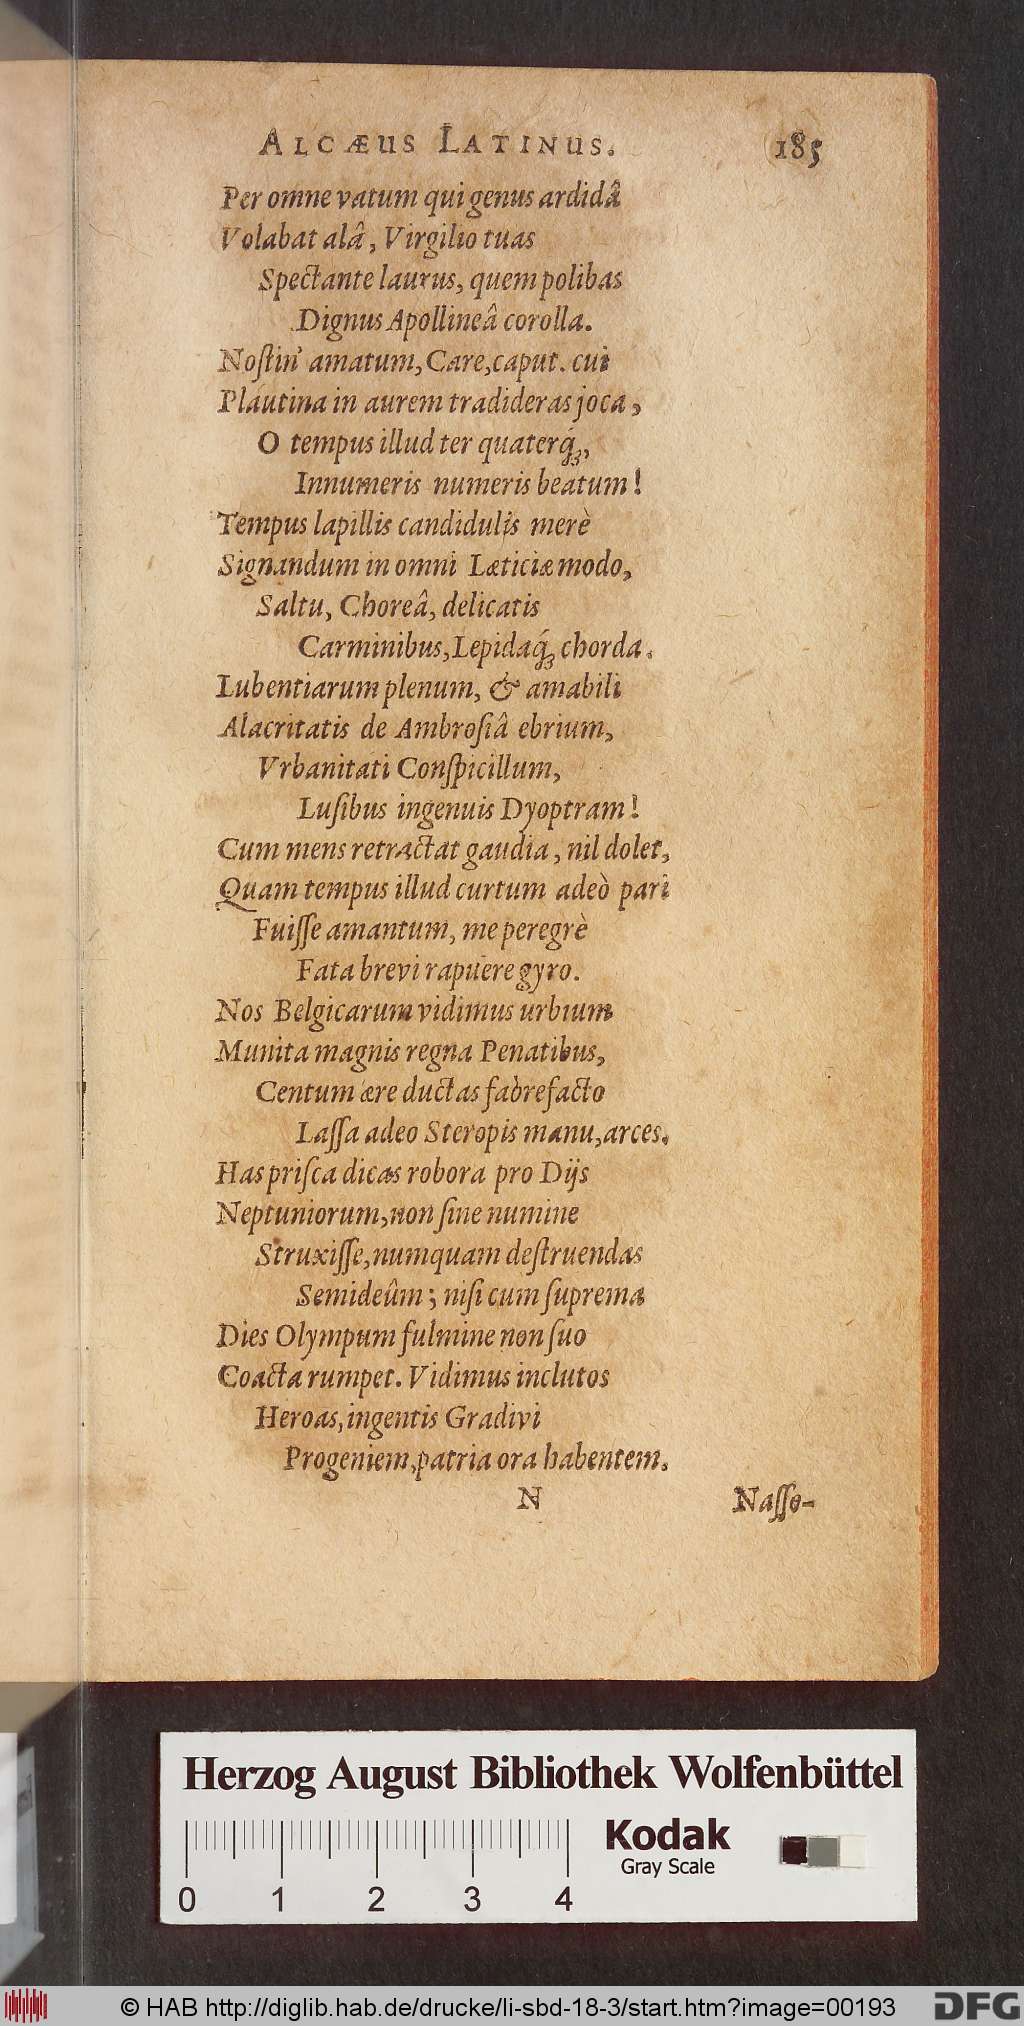 ALCÆUS LATINUS. 185
Per omne vatum qui genus ardidâ
Volabat alâ, Virgilio tuas
Spectante laurus, quem polibas
Dignus Apollineâ corolla.
Noſtin' amatum, Care, caput. cui
Plautina in aurem tradideras joca,
O tempus illud ter quaterq́ꝫ,
Innumeris numeris beatum!
Tempus lapillis candidulis merè
Signandum in omni Læticiæ modo,
Saltu, Choreâ, delicatis
Carminibus, Lepidaq́ꝫ chorda.
Lubentiarum plenum, & amabili
Alacritatis de Ambroſiâ ebrium,
Vrbanitati Conſpicillum,
Luſibus ingenuis Dyoptram!
Cum mens retractat gaudia, nil dolet,
Quam tempus illud curtum adeò pari
Fuiſſe amantum, me peregrè
Fata brevi rapuere gyro.
Nos Belgicarum vidimus urbium
Munita magnis regna Penatibus,
Centum ære ductas fabrefacto
Laſſa adeo Steropis manu, arces.
Has priſca dicas robora pro Dijs
Neptuniorum, non ſine numine
Struxiſſe, numquam deſtruendas
Semideûm; niſi cum ſuprema
Dies Olympum fulmine non ſuo
Coacta rumpet. Vidimus inclutos
Heroas, ingentis Gradivi
Progeniem, patria ora habentem.
N Naſſo-
Herzog August Bibliothek Wolfenbüttel
Kodak
Gray Scale
0 1 2 3 4
© HAB http://diglib.hab.de/drucke/li-sbd-18-3/start.htm?image=00193
DFG